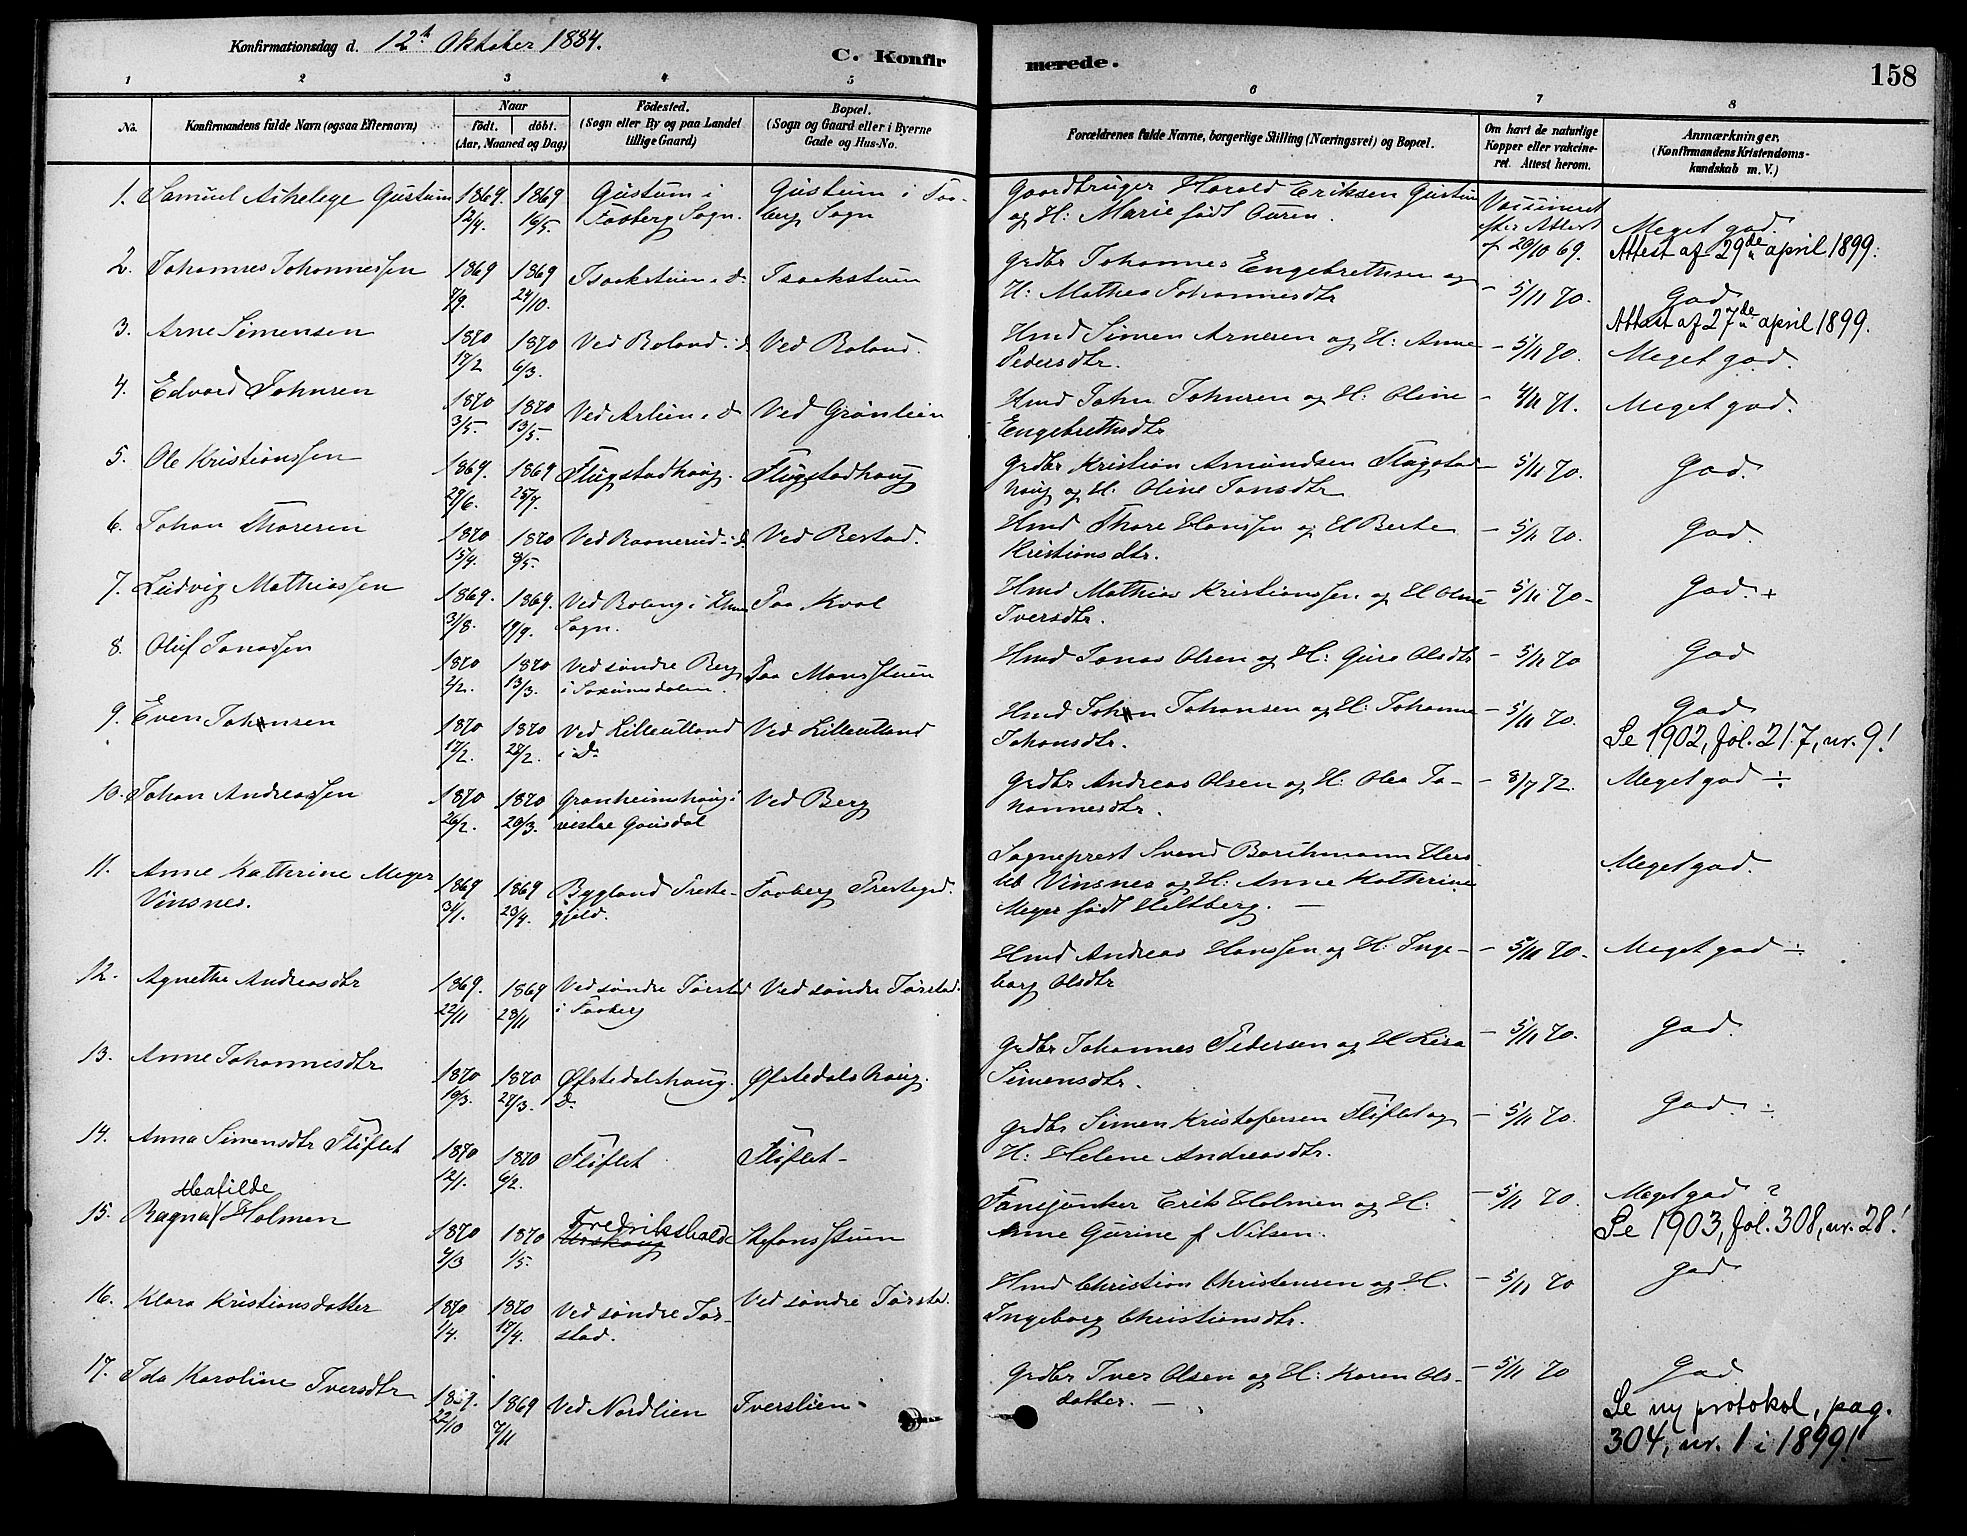 Konfirmationsdag d. 12th Oktober 1884.
C. Konfirmerede.
158
1 2 3 4 5 6 7 8
No.
Konfirmandens fulde Navn (ogsaa Efternavn)
Naar
født. døbt.
(Aar, Maaned og Dag)
Födested.
(Sogn eller By og paa Landet
tillige Gaard)
Bopæl.
(Sogn og Gaard eller i Byerne
Gade og Hus-No.
Forældrenes fulde Navne, borgerlige Stilling (Næringsvei) og Bopæl.
Om havt de naturlige
Kopper eller vakcine-
ret. Attest herom.
Anmærkninger,
(Konfirmandens Kristendoms-
kundskab m. V.)
1. Samuel Gustum 1869. 1869 Gustum i Gustum i Faa- Gaardbruger Harald Eriksen Gustum Vaccineret
12/4. 16/5. Faaberg Sogn. berg Sogn og H: Marie født Auren. efter Attest Meget god.
af 20/10 69. Attest af 29de april 1899.
2. Johannes Johannessen 1869 1869 Isackstuen i do Isackstuen Grdbr Johannes Engebrethsen og
7/9. 24/10. H: Mathea Johannesdtr - 5/11 70. God
Attest af 27de april 1899.
3. Arne Simensen 1870 1870 Ved Roland i d. Ved Roland. Hmd Simen Arnesen og H: Anne - 5/11 70. Meget god.
17/2 6/3. Pedersdtr.
4. Edvard Johnsen 1870 1870 Ved Arlien i d Ved Grønlien Hmd John Johnsen og H: Oline - 4/11 71. Meget god.
3/5. 13/5. Engebrethsdtr
5. Ole Kristianssen 1869. 1869 Flugstadhaug. Flugstadhaug Grdbr Kristian Amundsen Flugstad- - 5/11 70. God.
29/6. 25/7. haug og H. Oline Jonsdtr
6. Johan Thoresen 1870 1870 Ved Baanerud i d. Ved Bestad. Hmd Thore Hanssen og H Berte - 5/11 70. God
15/4. 8/5. Kristiansdtr.
7. Ludvig Mathiassen 1869. 1869. Ved Rolang i Paa Kval Hmd Mathias Kristianssen og H Oline - 5/11 70. God. +
31/8. 19/9. Sogn. Iversdtr.
8. Oluf Jonassen 1870 1870 Ved søndre Berg Paa Mansstuen Hmd Jonas Olsen og H: Guro Olsdtr - 5/11 70 God
2/2. 13/3. i Saxumsdalen.
9. Even Johnsen 1870 1870 Ved Lilleutland Ved Lilleutland Hmd John Johansen og H: Johanne - 5/11 70. God
17/2. 28/2. i d. Johansdtr. Se 1902, fol. 217, nr. 9!
10. Johan Andreassen 1870 1870 Granheimshaug i Ved Berg Grdbr Andreas Olsen og H: Olea Jo- - 8/7 72. Meget god ÷
26/2. 20/3. vestre Gausdal hannesdtr.
11. Anne Kathrine Meyer 1869 1869 Bygland Preste- Faaberg Prestegrd. Sogneprest Svend Borchmann Hers- Meget god.
Vinsnes. 3/1. 23/4. gjeld. leb Vinsnes og H: Anne Kathrine
Meyer født Hiltberg. —
12. Agnethe Andreasdtr 1869. 1869 Ved søndre Jørstad Ved søndre Jørstad. Hmd Andreas Hanssen og H: Inge- - 5/11 70. Meget god ÷
22/11 28/11 i Faaberg borg Olsdtr
13. Anne Johannesdtr 1870 1870 Øfstedalshaug. Øfstedalshaug. Grdbr Johannes Pedersen og H Lisa - 5/11 70. God.
10/3. 27/3. d. Simensdtr.
14. Anna Simensdtr Fliflet 1870 1870 Fliflet Fliflet- Grdbr Simen Kristofersen Fliflet og - 5/11 70. God. ÷
12/1. 6/2. H: Helene Andreasdtr.
15. Ragna Matilde Holmen 1870 1870 Fredrikshald Stefansstuen Fanejunker Erik Holmen og H: - 5/11 70. Meget god ?
4/3 1/5. Anne Gurine f Nilsen. Se 1903, fol. 308, nr. 28!
16. Klara Kristiansdatter 1870 1870 Ved søndre Jør- Ved søndre Jørstad. Hmd Christian Christensen og H. - 5/11 70 God.
1/4. 18/4. stad. Ingeborg Christiansdtr.
17. Ida Karoline Iversdtr 1869. 1869 Ved Nordlien Iverslien. Grdbr Iver Olsen og H: Karen Ols- - 5/11 70 God
22/10 7/11 datter. —
Se ny protokol, pag.
304, nr. 1 i 1899! —